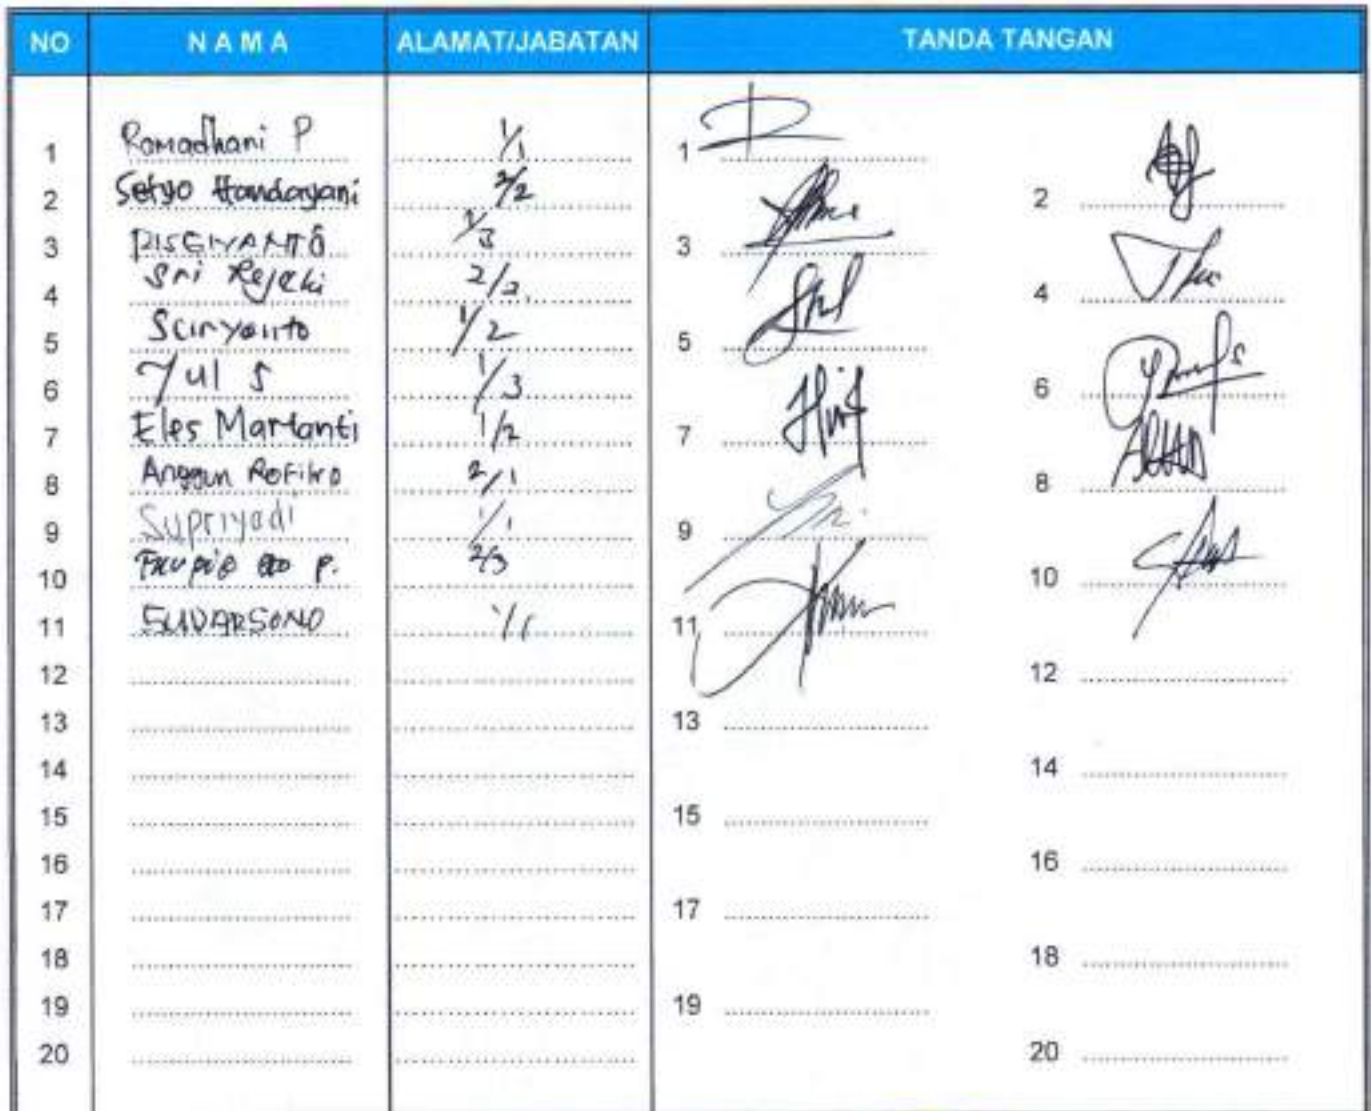 NO NAMA ALAMAT/JABATAN TANDA TANGAN
1 Ramadhani P 1/1 1
2 Setyo Handayani 2/2 2
3 1/3 3
4 Sri Rejeki 2/2 4
5 Suryanto 1/2 5
6 Yul S 1/3 6
7 Eles Martanti 1/2 7
8 Anggun Rofiko 2/1 8
9 Supriyadi 1/1 9
10 P. 2/3 10
11 SUDARSONO 1/1 11
12 12
13 13
14 14
15 15
16 16
17 17
18 18
19 19
20 20